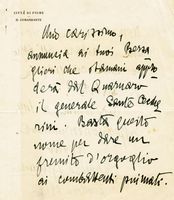 CITTÀ DI FIUME
IL COMANDANTE
Mio carissimo,
annuncia ai tuoi Bersa
glieri che stamani appro
derà dal Quarnaro
il generale Sante Cecche
rini. Basta questo
nome per dare un
fremito d'orgoglio
ai combattenti piumati.